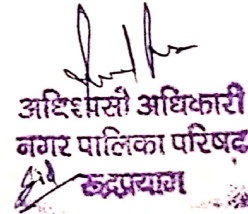 अधिशासी अधिकारी
नगर पालिका परिषद
रूद्रप्रयाग